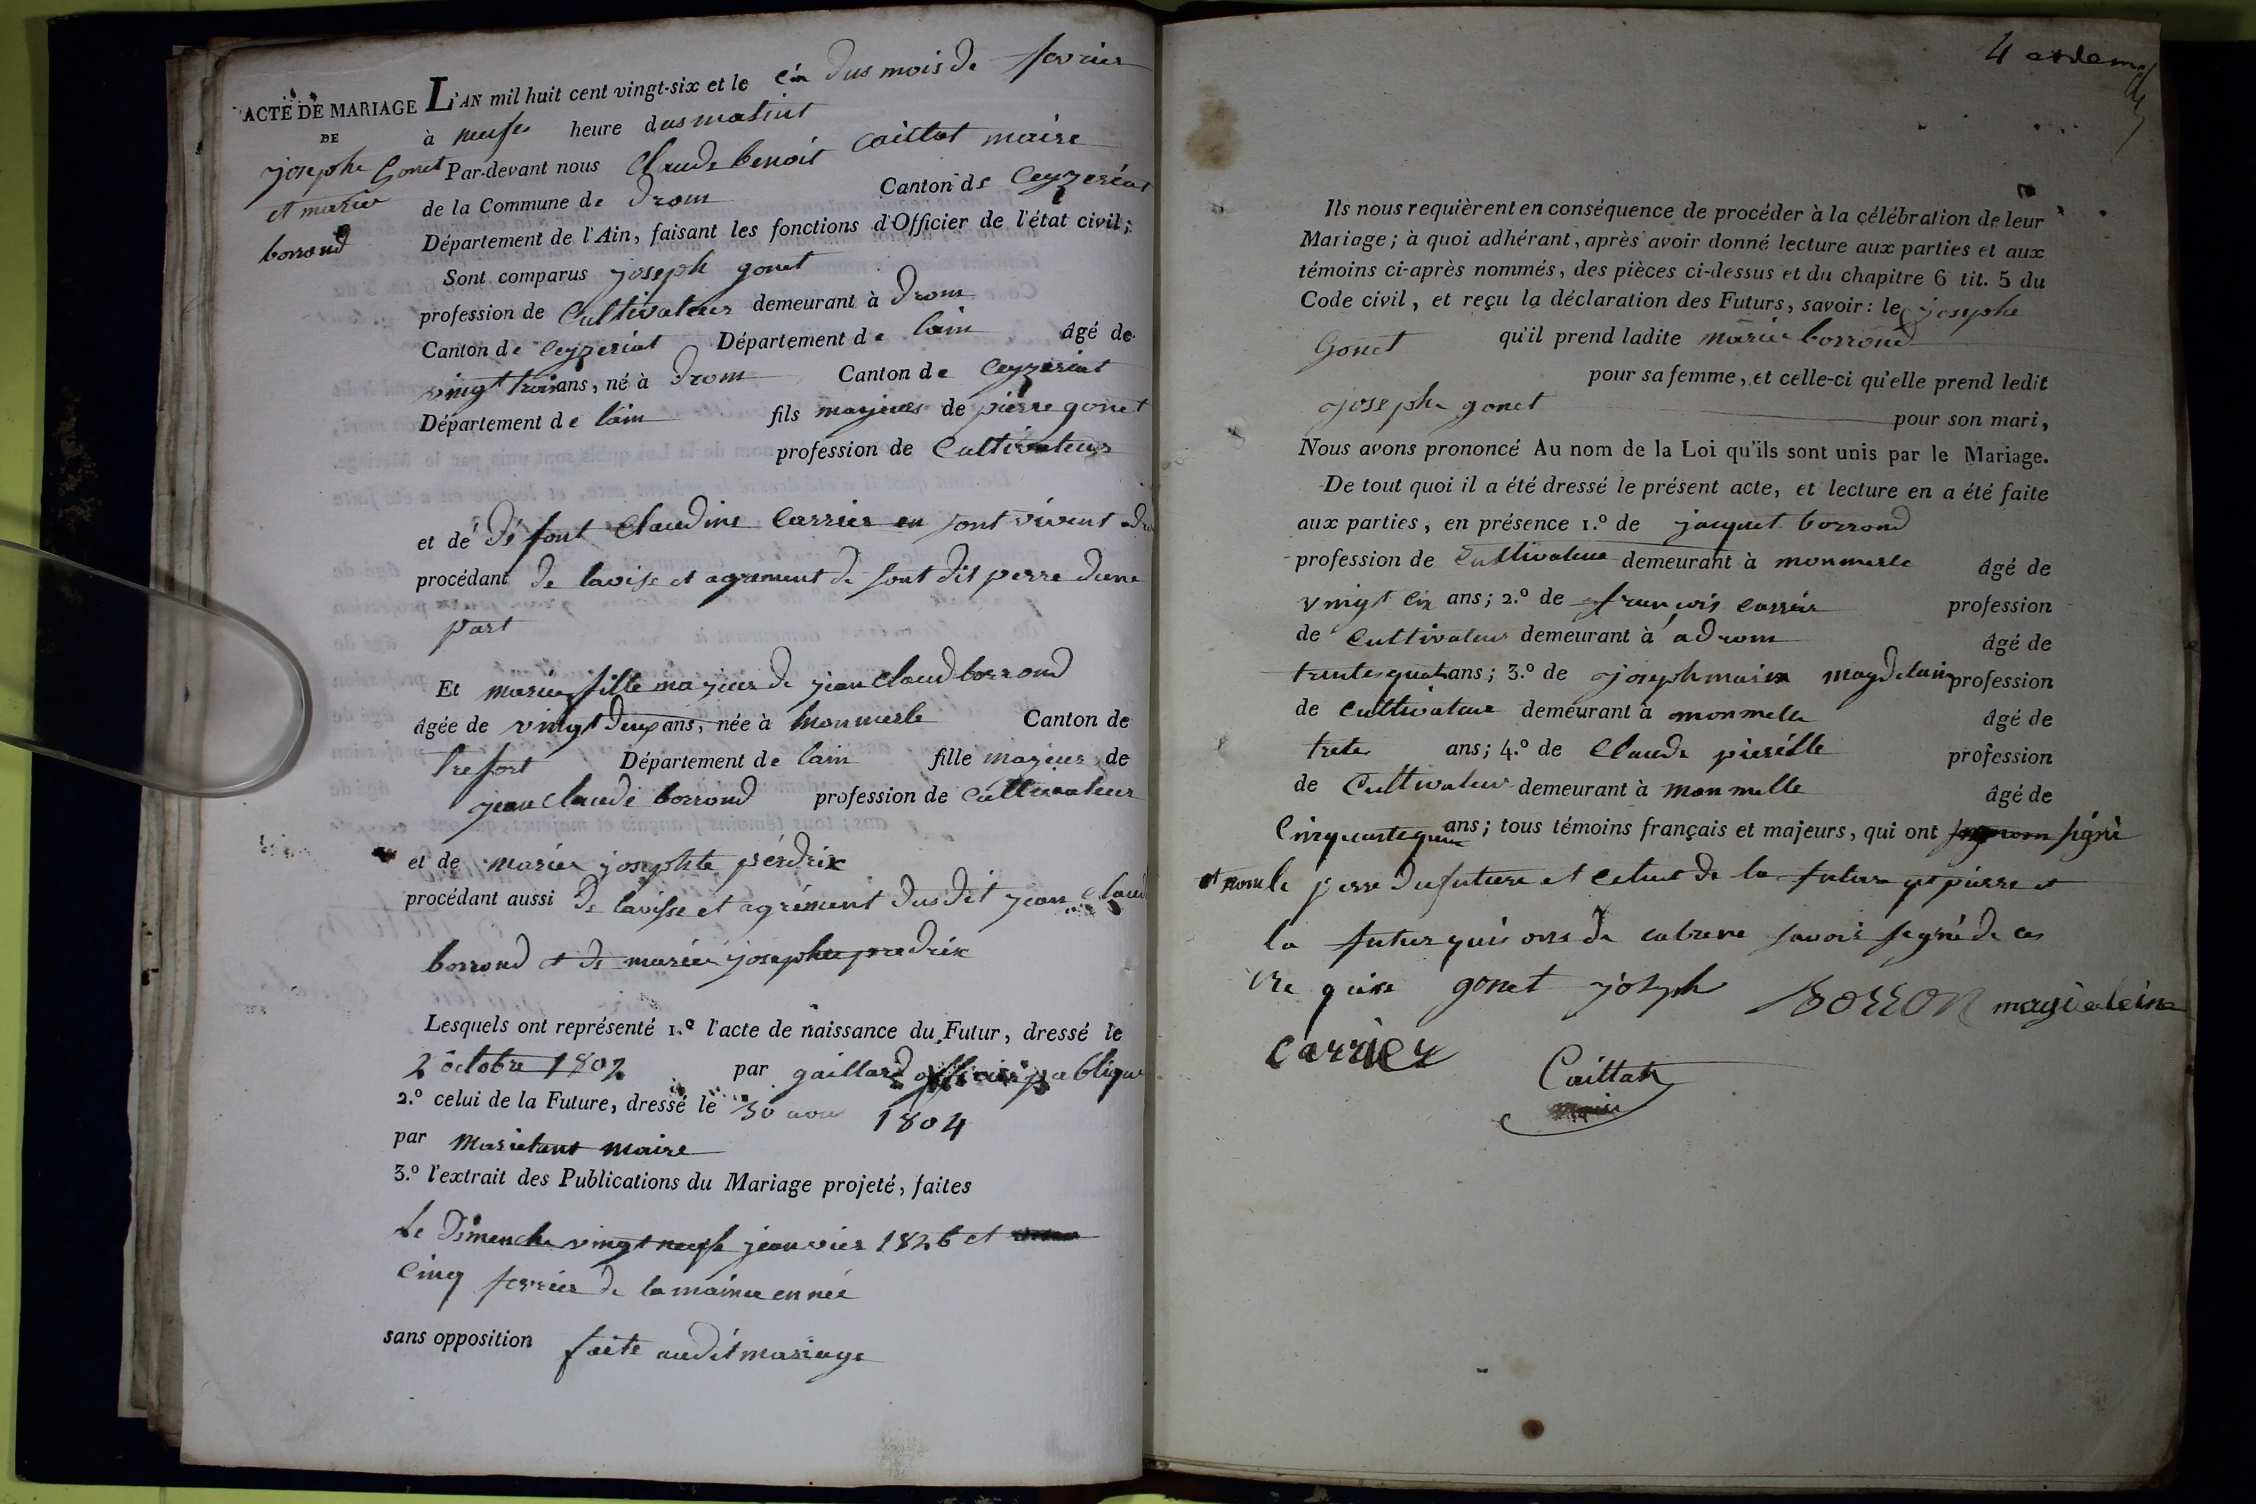 ACTE DE MARIAGE
DE
josephe Gonet
et marie
borrond
L'AN mil huit cent vingt-six et le cin dus mois de fevrier
à neufe heure dus matint
Par-devant nous Claude benoit Caillat maire
de la Commune de Drom Canton de Ceyzeriat
Département de l'Ain, faisant les fonctions d'Officier de l'état civil;
Sont comparus joseph gonet
profession de Cultivateur demeurant à Drom
Canton de Ceyzeriat Département de lain âgé de
vingt trois ans, né à Drom Canton de Ceyzeriat
Département de lain fils majeur de pierre gonet
profession de Cultivateur
et de défont Claudine Carrier en sont vivent
procédant de lavise et agrement de sont dit perre dune
part
Et marie fille majeur de jean Claud borrond
âgée de vingt deux ans, née à monmerle Canton de
trefort Département de lain fille majeur de
jean Claude borrond profession de Cultivateur
et de marie josephte pérdrix
procédant aussi de lavisse et agrément dus dit jean Claud
borrond et de marie josephte predrix
Lesquels ont représenté 1.º l'acte de naissance du Futur, dressé le
2 octobre 1802 par gaillard publique
2.º celui de la Future, dressé le 30 1804
par maire
3.º l'extrait des Publications du Mariage projeté, faites
Le Dimenche vingt neufe jeanvier 1826 et
Cinq fevrier de la maime ennée
sans opposition faite audit mariage
4
Ils nous requièrent en conséquence de procéder à la célébration de leur
Mariage; à quoi adhérant, après avoir donné lecture aux parties et aux
témoins ci-après nommés, des pièces ci-dessus et du chapitre 6 tit. 5 du
Code civil, et reçu la déclaration des Futurs, savoir: le josephe
Gonet qu'il prend ladite marie borrond
pour sa femme, et celle-ci qu'elle prend ledit
joseph gonet
pour son mari,
Nous avons prononcé Au nom de la Loi qu'ils sont unis par le Mariage.
De tout quoi il a été dressé le présent acte, et lecture en a été faite
aux parties, en présence 1.º de jacquet borrond
profession de Cultivateur demeurant à monmerle âgé de
vingt ans; 2.º de françois carrier profession
de Cultivateur demeurant à a drom âgé de
trente quat ans; 3.º de joseph marie magdelain profession
de Cultivateur demeurant à monmelle âgé de
trete ans; 4.º de Claude profession
de Cultivateur demeurant à monmelle âgé de
Cinquante ans; tous témoins français et majeurs, qui ont signé
et nom le perre du future et celuit de la future pierre et
la futur quis ons de savoir signé de ces
re quise gonet joseph BORRON magdeleine
carrier
Caillat
maire